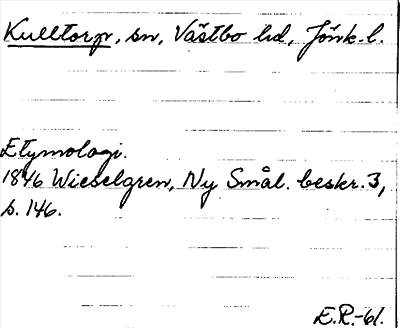 Kulltorp, sn, Västbo hd, Jönk. l.
Etymologi.
1846 Wieselgren, Ny Smål. beskr. 3,
s. 146.
E.R.-61.